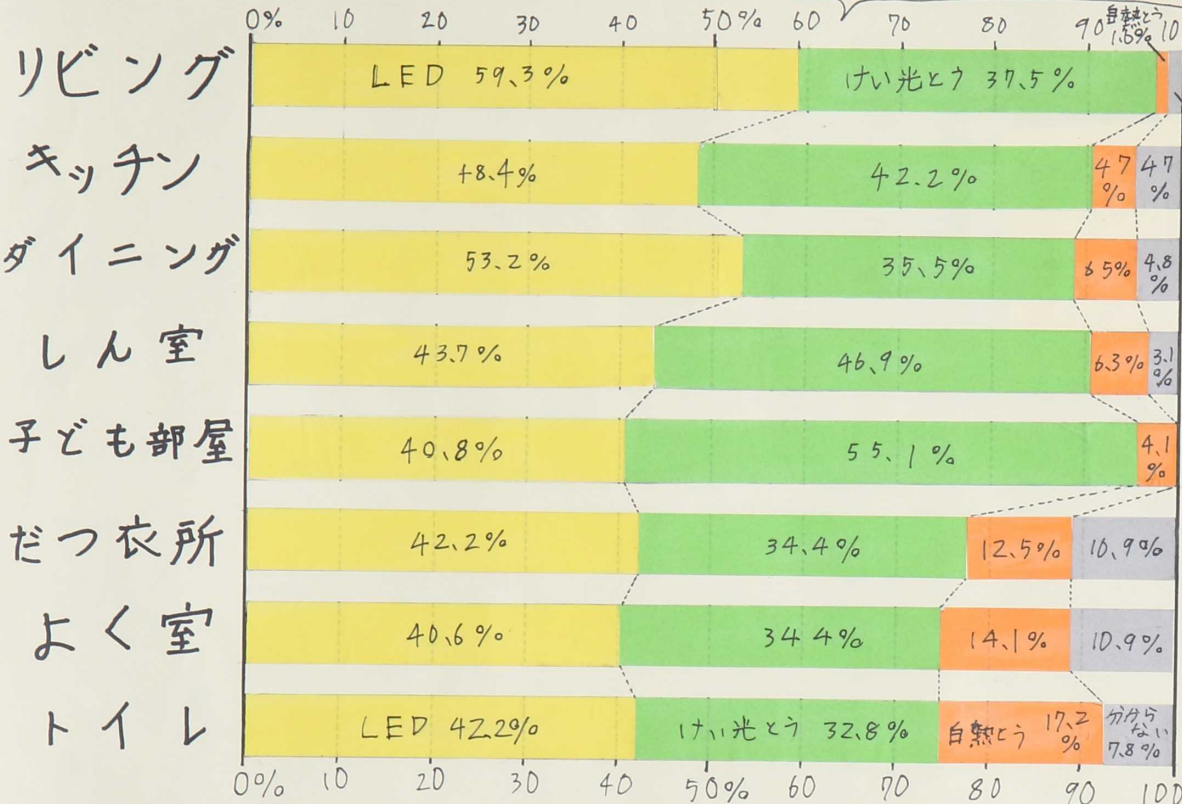 0% 10 20 30 40 50% 60 70 80 90 10
白熱とう
1.6%
リビング LED 59.3% けい光とう 37.5%
キッチン 48.4% 42.2% 4.7% 4.7%
ダイニング 53.2% 35.5% 6.5% 4.8%
しん室 43.7% 46.9% 6.3% 3.1%
子ども部屋 40.8% 55.1% 4.1%
だつ衣所 42.2% 34.4% 12.5% 10.9%
よく室 40.6% 34.4% 14.1% 10.9%
トイレ LED 42.2% けい光とう 32.8% 白熱とう 17.2% 分からない 7.8%
0% 10 20 30 40 50% 60 70 80 90 100